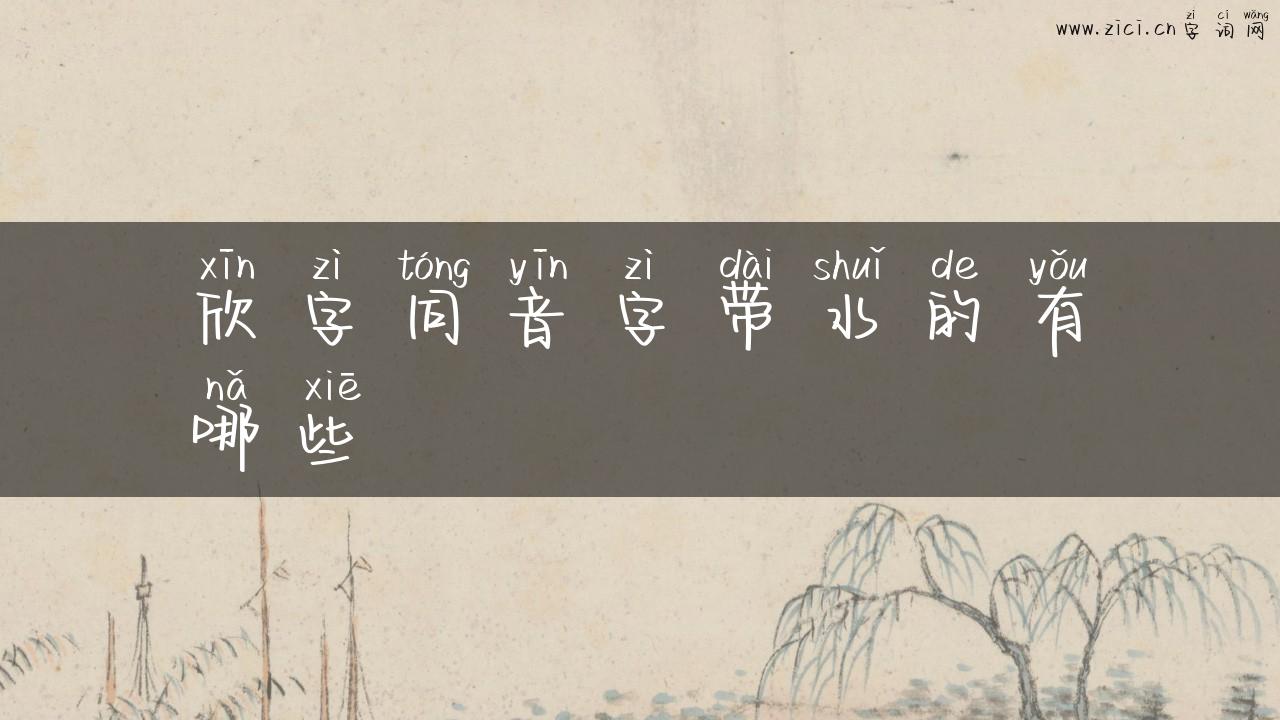 www.zici.cn 字词网
zì cí wǎng
xīn zì tóng yīn zì dài shuǐ de yǒu
欣字同音字带水的有
nǎ xiē
哪些